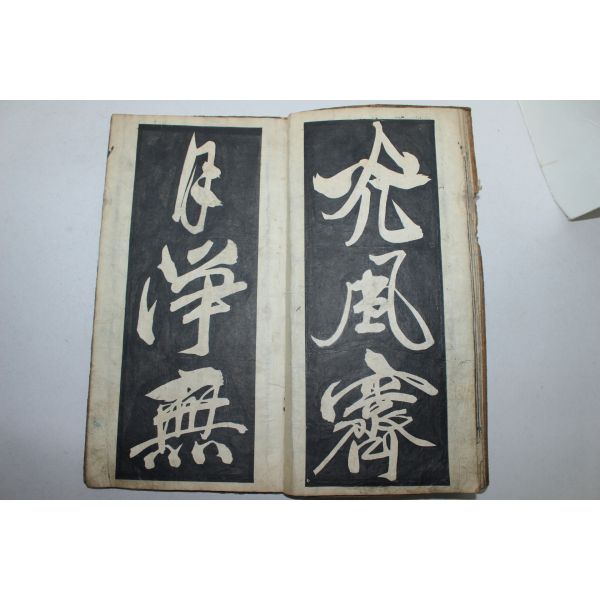 光風霽
月無